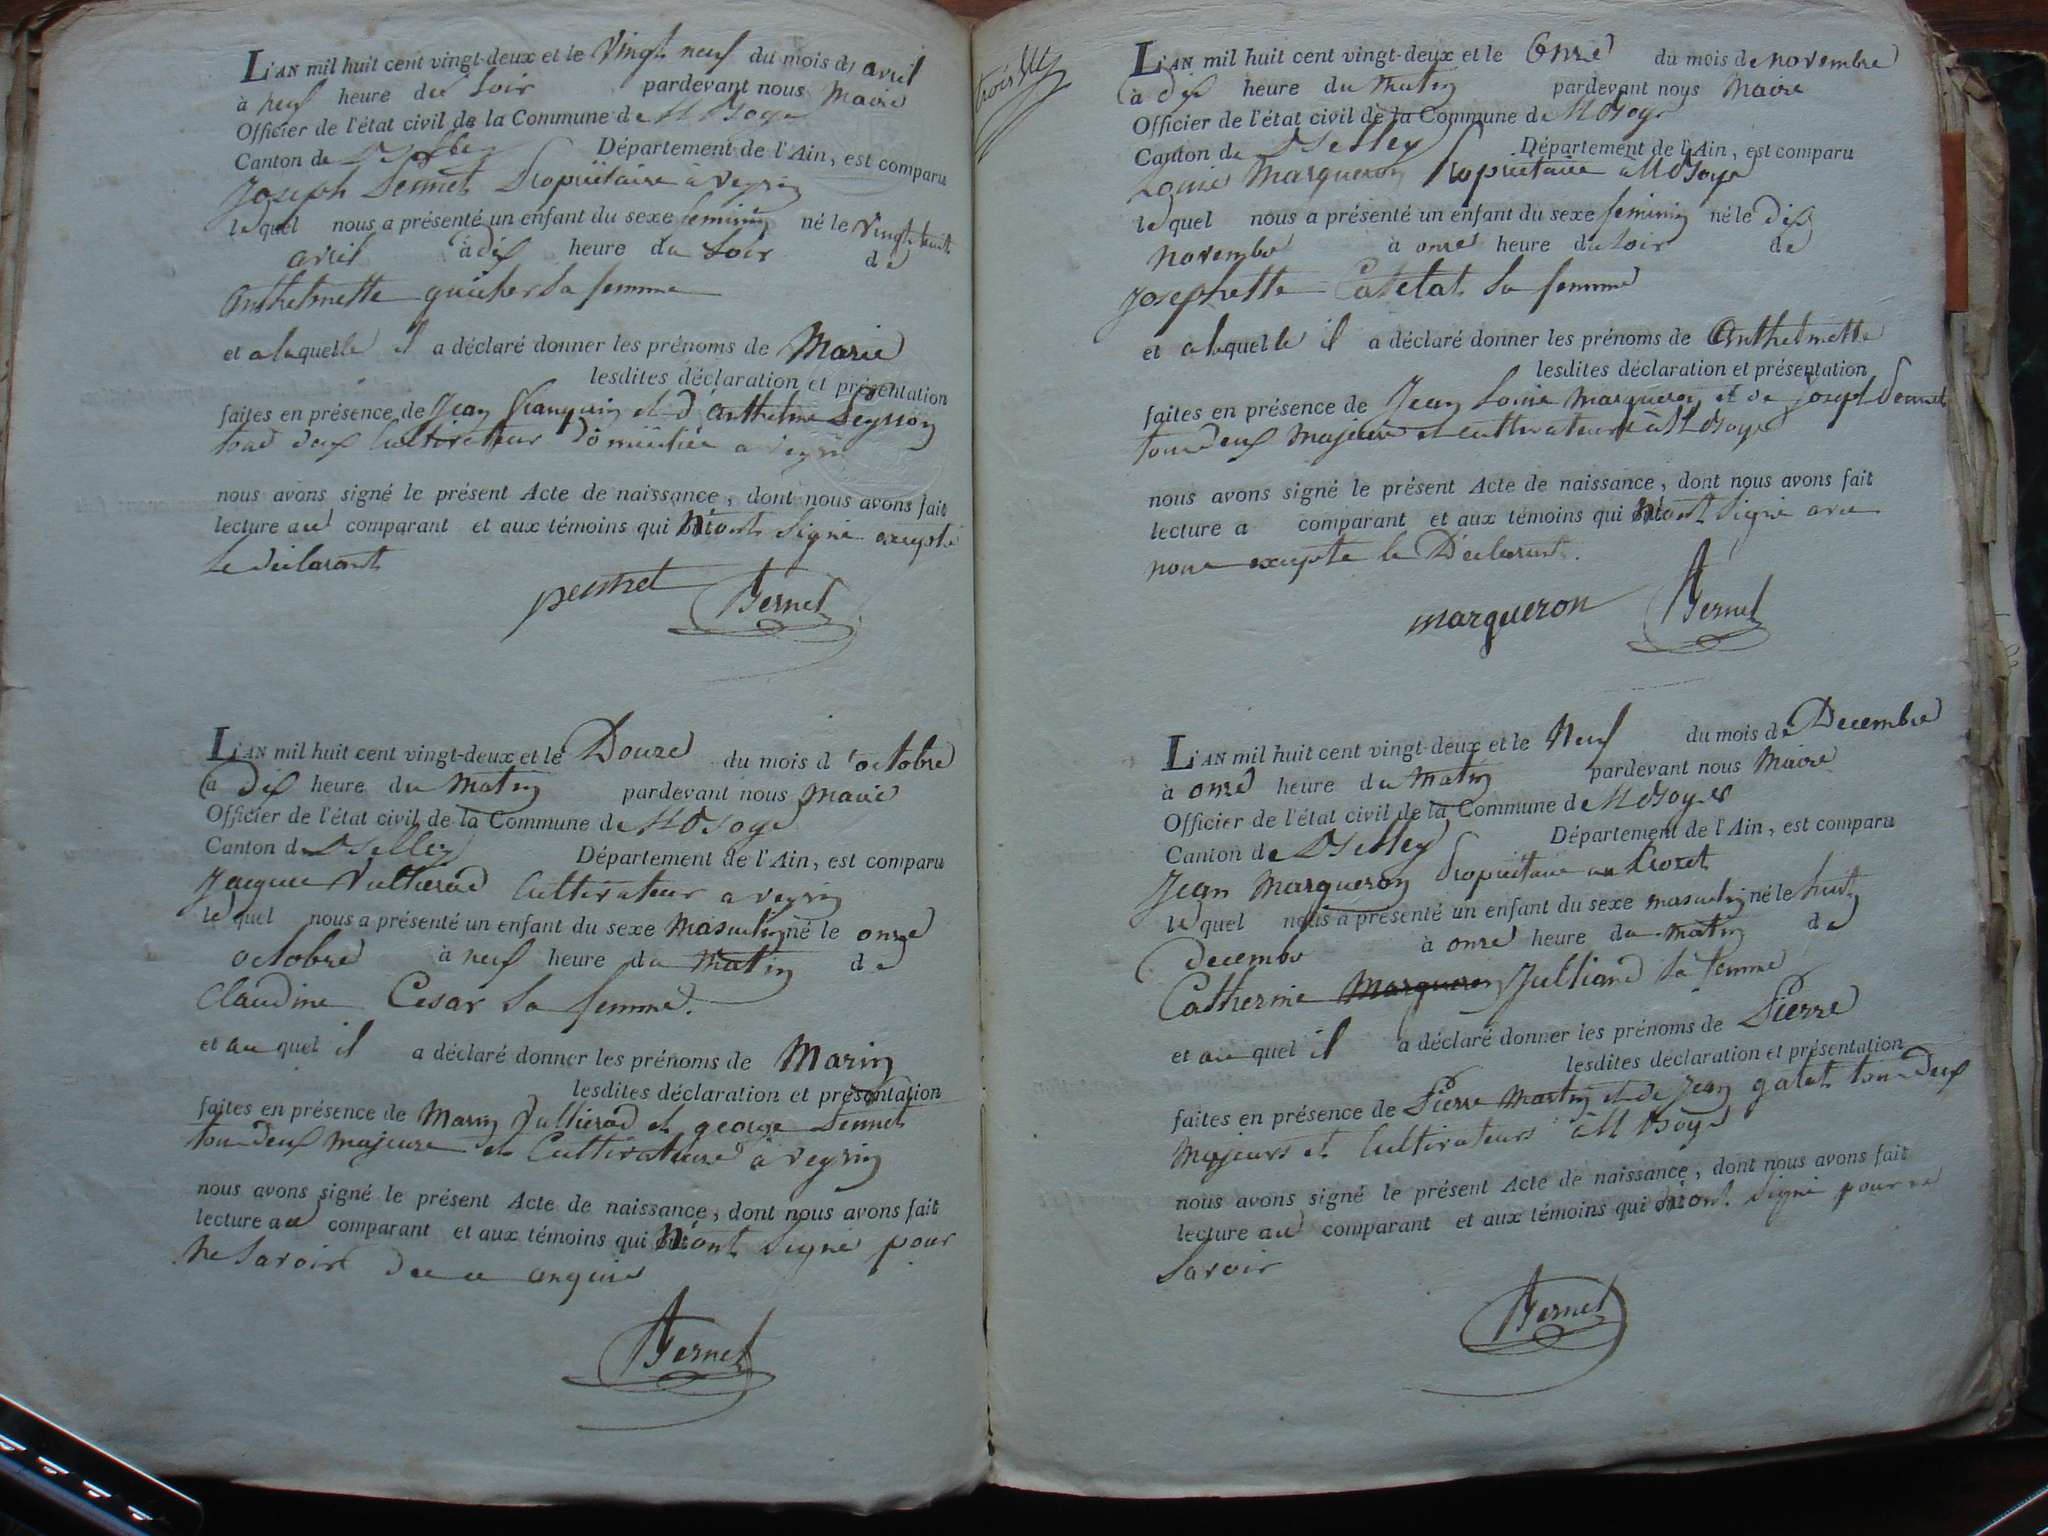 L'AN mil huit cent vingt-deux et le Vingt neuf du mois d'avril
à neuf heure du Soir pardevant nous Maire
Officier de l'état civil de la Commune de
Canton de Département de l'Ain, est comparu
Joseph Pennet Propriétaire à veyrin
lequel nous a présenté un enfant du sexe feminin né le Vingt huit
avril à dix heure du Soir de
Anthelmette sa femme
et a laquelle il a déclaré donner les prénoms de Marie
lesdites déclaration et présentation
faites en présence de Jean et d'anthelme Peysson
tous deux Cultivateur Domicilié a veyrin
nous avons signé le présent Acte de naissance, dont nous avons fait
lecture au comparant et aux témoins qui n'ont Signé excepté
le déclarant
pennet Bernet
L'AN mil huit cent vingt-deux et le Douze du mois d'octobre
à Dix heure du Matin pardevant nous Maire
Officier de l'état civil de la Commune de
Canton de Département de l'Ain, est comparu
Jacques Vullierod Cultivateur a veyrin
lequel nous a présenté un enfant du sexe Masculin né le onze
octobre à neuf heure du Matin de
Claudine Cesar Sa femme.
et au quel il a déclaré donner les prénoms de Marin
lesdites déclaration et présentation
faites en présence de Marin Vullierod et george Pennet
tous Deux majeurs et Cultivateurs à veyrin
nous avons signé le présent Acte de naissance, dont nous avons fait
lecture au comparant et aux témoins qui n'ont Signé pour
Ne Savoir de ce enquis
Bernet
L'AN mil huit cent vingt-deux et le Onze du mois de novembre
à dix heure du Matin pardevant nous Maire
Officier de l'état civil de la Commune de
Canton de Département de l'Ain, est comparu
Louis Margueron Propriétaire à
lequel nous a présenté un enfant du sexe feminin né le Dix
novembre à onze heure du Soir de
Josephette Catelat Sa femme
et a laquelle il a déclaré donner les prénoms de Anthelmette
lesdites déclaration et présentation
faites en présence de Jean Louis Margueron et de Joseph Pennet
tous deux Majeurs et cultivateurs à
nous avons signé le présent Acte de naissance, dont nous avons fait
lecture a comparant et aux témoins qui n'ont Signé avec
nous excepté le Déclarant.
margueron Bernet
L'AN mil huit cent vingt-deux et le Neuf du mois de Decembre
à onze heure du Matin pardevant nous Maire
Officier de l'état civil de la Commune de
Canton de Département de l'Ain, est comparu
Jean Margueron Propriétaire au Crozet
lequel nous a présenté un enfant du sexe masculin né le huit
decembre à onze heure du matin de
Catherine Margueron Julliand Sa femme
et au quel il a déclaré donner les prénoms de Pierre
lesdites déclaration et présentation
faites en présence de Pierre Martin et de Jean galat tous Deux
Majeurs et Cultivateurs à
nous avons signé le présent Acte de naissance, dont nous avons fait
lecture au comparant et aux témoins qui n'ont Signé pour ne
Savoir
Bernet